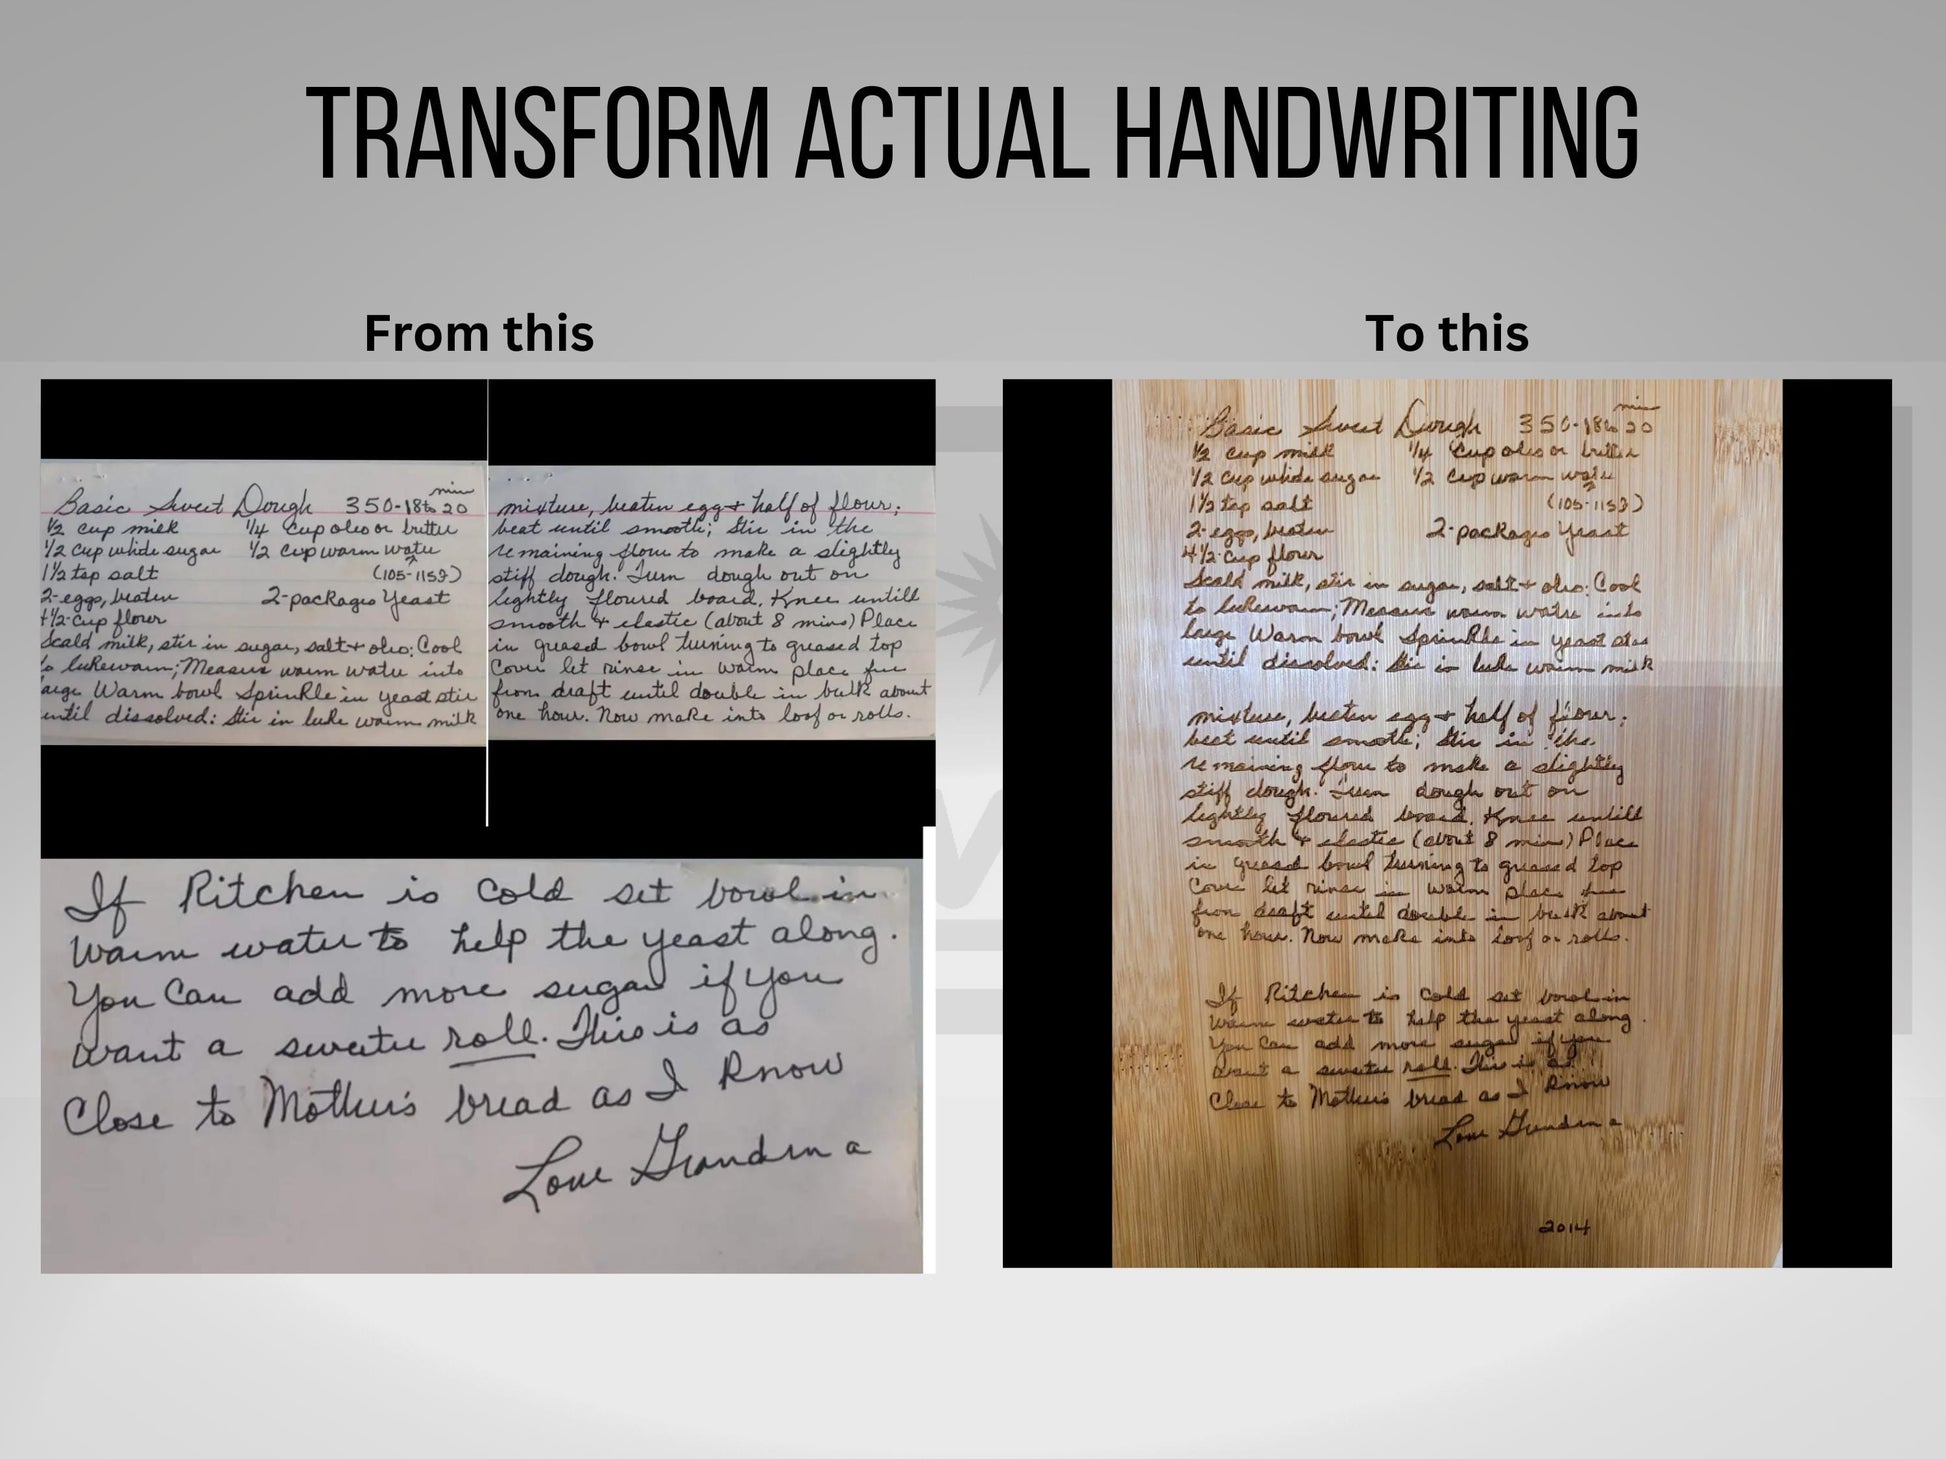 TRANSFORM ACTUAL HANDWRITING
From this
To this
Basic Sweet Dough 350-18 to 20 min
1/2 cup milk 1/4 Cup oleo or butter
1/2 cup white sugar 1/2 cup warm water
1 1/2 tsp salt (105-115°)
2-eggs, beaten 2-packages Yeast
4 1/2 cup flour
Scald milk, stir in sugar, salt + oleo: Cool
to lukewarm; Measure warm water into
large Warm bowl Sprinkle in yeast stir
until dissolved: Stir in luke warm milk
mixture, beaten egg + half of flour;
beat until smooth; Stir in the
remaining flour to make a slightly
stiff dough. Turn dough out on
lightly floured board. Knee untill
smooth + elastic (about 8 mins) Place
in greased bowl turning to greased top
Cover let rinse in warm place free
from draft until double in bulk about
one hour. Now make into loof or rolls.
If Kitchen is cold set bowl in
warm water to help the yeast along.
You Can add more sugar if you
want a sweeter roll. This is as
Close to Mother's bread as I know
Love Grandma
Basic Sweet Dough 350-18 to 20 min
1/2 cup milk 1/4 Cup oleo or butter
1/2 cup white sugar 1/2 cup warm water
1 1/2 tsp salt (105-115°)
2-eggs, beaten 2-packages Yeast
4 1/2 cup flour
Scald milk, stir in sugar, salt + oleo: Cool
to lukewarm; Measure warm water into
large Warm bowl Sprinkle in yeast stir
until dissolved: Stir in luke warm milk
mixture, beaten egg + half of flour;
beat until smooth; Stir in the
remaining flour to make a slightly
stiff dough. Turn dough out on
lightly floured board. Knee untill
smooth + elastic (about 8 mins) Place
in greased bowl turning to greased top
Cover let rinse in warm place free
from draft until double in bulk about
one hour. Now make into loof or rolls.
If Kitchen is cold set bowl in
warm water to help the yeast along.
You Can add more sugar if you
want a sweeter roll. This is as
Close to Mother's bread as I know
Love Grandma
2014